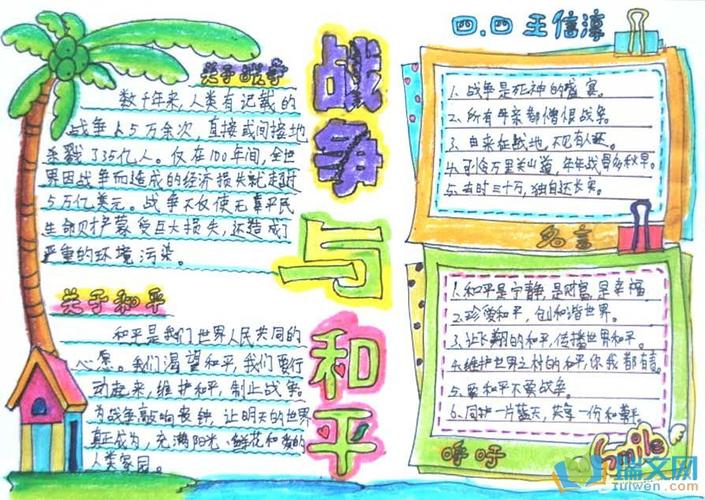 关于战争
数千年来，人类有记载的
战争占5万余次，直接或间接地
杀戮了35亿人。仅在100年间，全世
界因战争而造成的经济损失就超过
5万亿美元。战争不仅使无辜平民
生命财产蒙受巨大损失，还造成了
严重的环境污染。
关于和平
和平是我们世界人民共同的
心愿。我们渴望和平，我们要行
动起来，维护和平，制止战争。
为战争敲响丧钟，让明天的世界
真正成为，充满阳光、鲜花和爱的
人类家园。
战争与和平
四.四 王信淳
1、战争是死神的盛宴。
2、所有母亲都憎恨战争。
3、由来征战地，不见有人还。
4、可怜万里关山道，年年战骨多秋草。
5、去时三十万，独自还长安。
名言
1.和平是宁静，是财富，是幸福
2、珍爱和平，创和谐世界。
3、让飞翔的和平，传播世界和平。
4、维护世界之村的和平，你我都有责。
5、要和平不要战争。
6、同护一片蓝天，共享一份和
呼吁
Smile
瑞文网
ruiwen.com